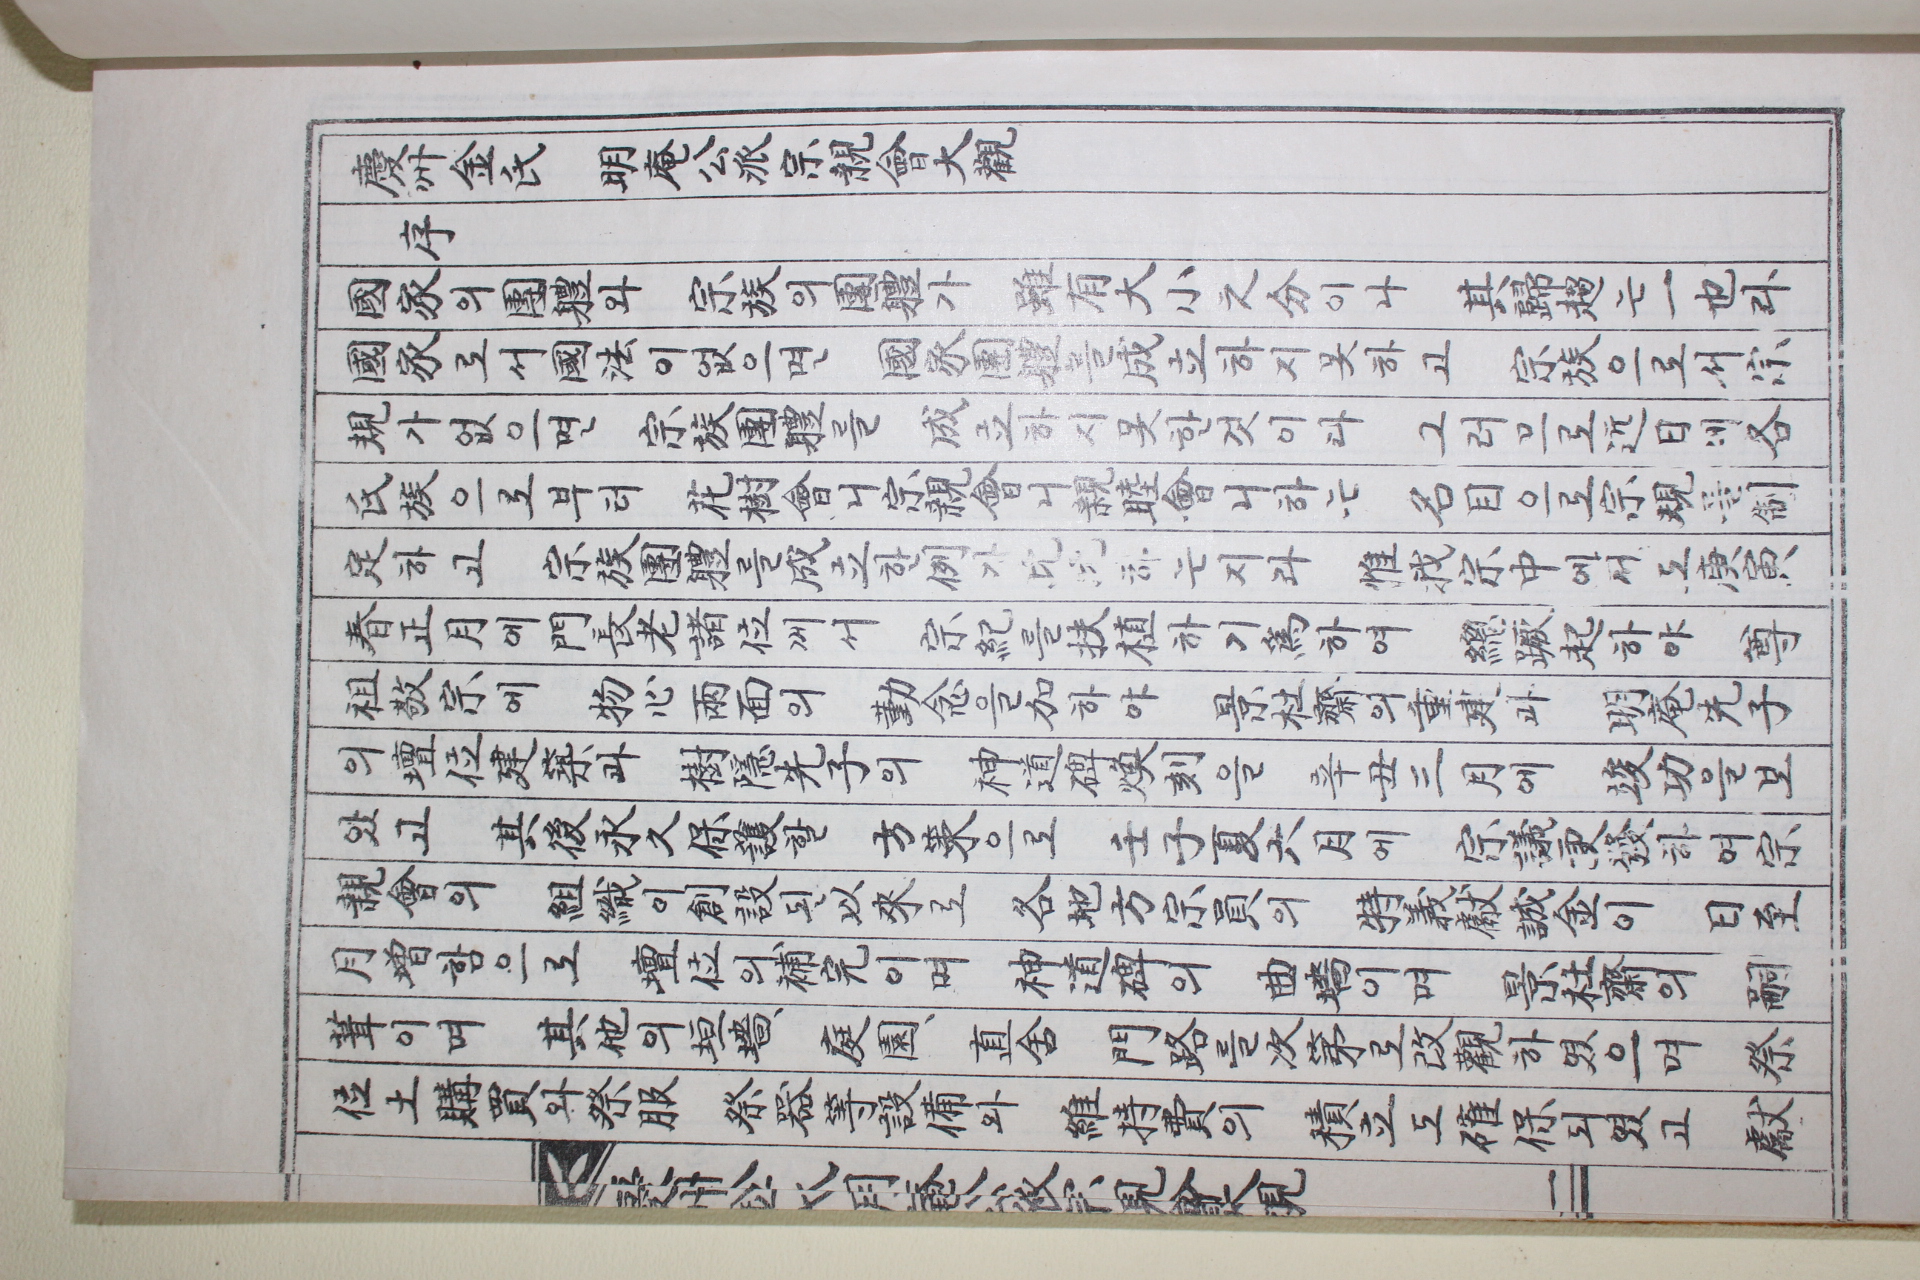 慶州金氏 明庵公派宗親會大觀
序
國家의團體와 宗族의團體가 雖有大小之分이나 其歸趣는一也라
國家로서國法이없으면 國家團體를成立하지못하고 宗族으로서宗
規가없으면 宗族團體를 成立하지못한것이라 그러므로近日에各
氏族으로부터 花樹會니宗親會니親睦會니하는 名目으로宗規를制
定하고 宗族團體를成立한例가 하는지라 惟我宗中에서도庚寅
春正月에門長老諸位께서 宗紀를扶植하기爲하여 總蹶起하야 尊
祖敬宗에 物心兩面의 勤念을加하야 景杜齋의重建과 明庵先子
의壇位建築과 樹隱先子의 神道碑煥刻을 辛丑三月에 竣功을보
았고 其後永久保護할 方策으로 壬子夏六月에 宗議更發하여宗
親會의 組織이創設된以來로 各地方宗員의 特義獻誠金이 日至
月增함으로 壇位의補完이며 神道碑의 曲墻이며 景杜齋의
葺이며 其他의垣墻、庭園、直舍 門路를次第로改觀하였으며 祭
位土購買와祭服 祭器等設備와 維持費의 積立도確保되였고 獻
慶州金氏明庵公派宗親會大觀